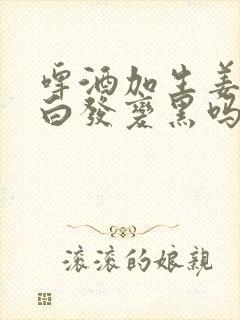 啤酒加生姜
白發變黑吗
滚滚的娘親